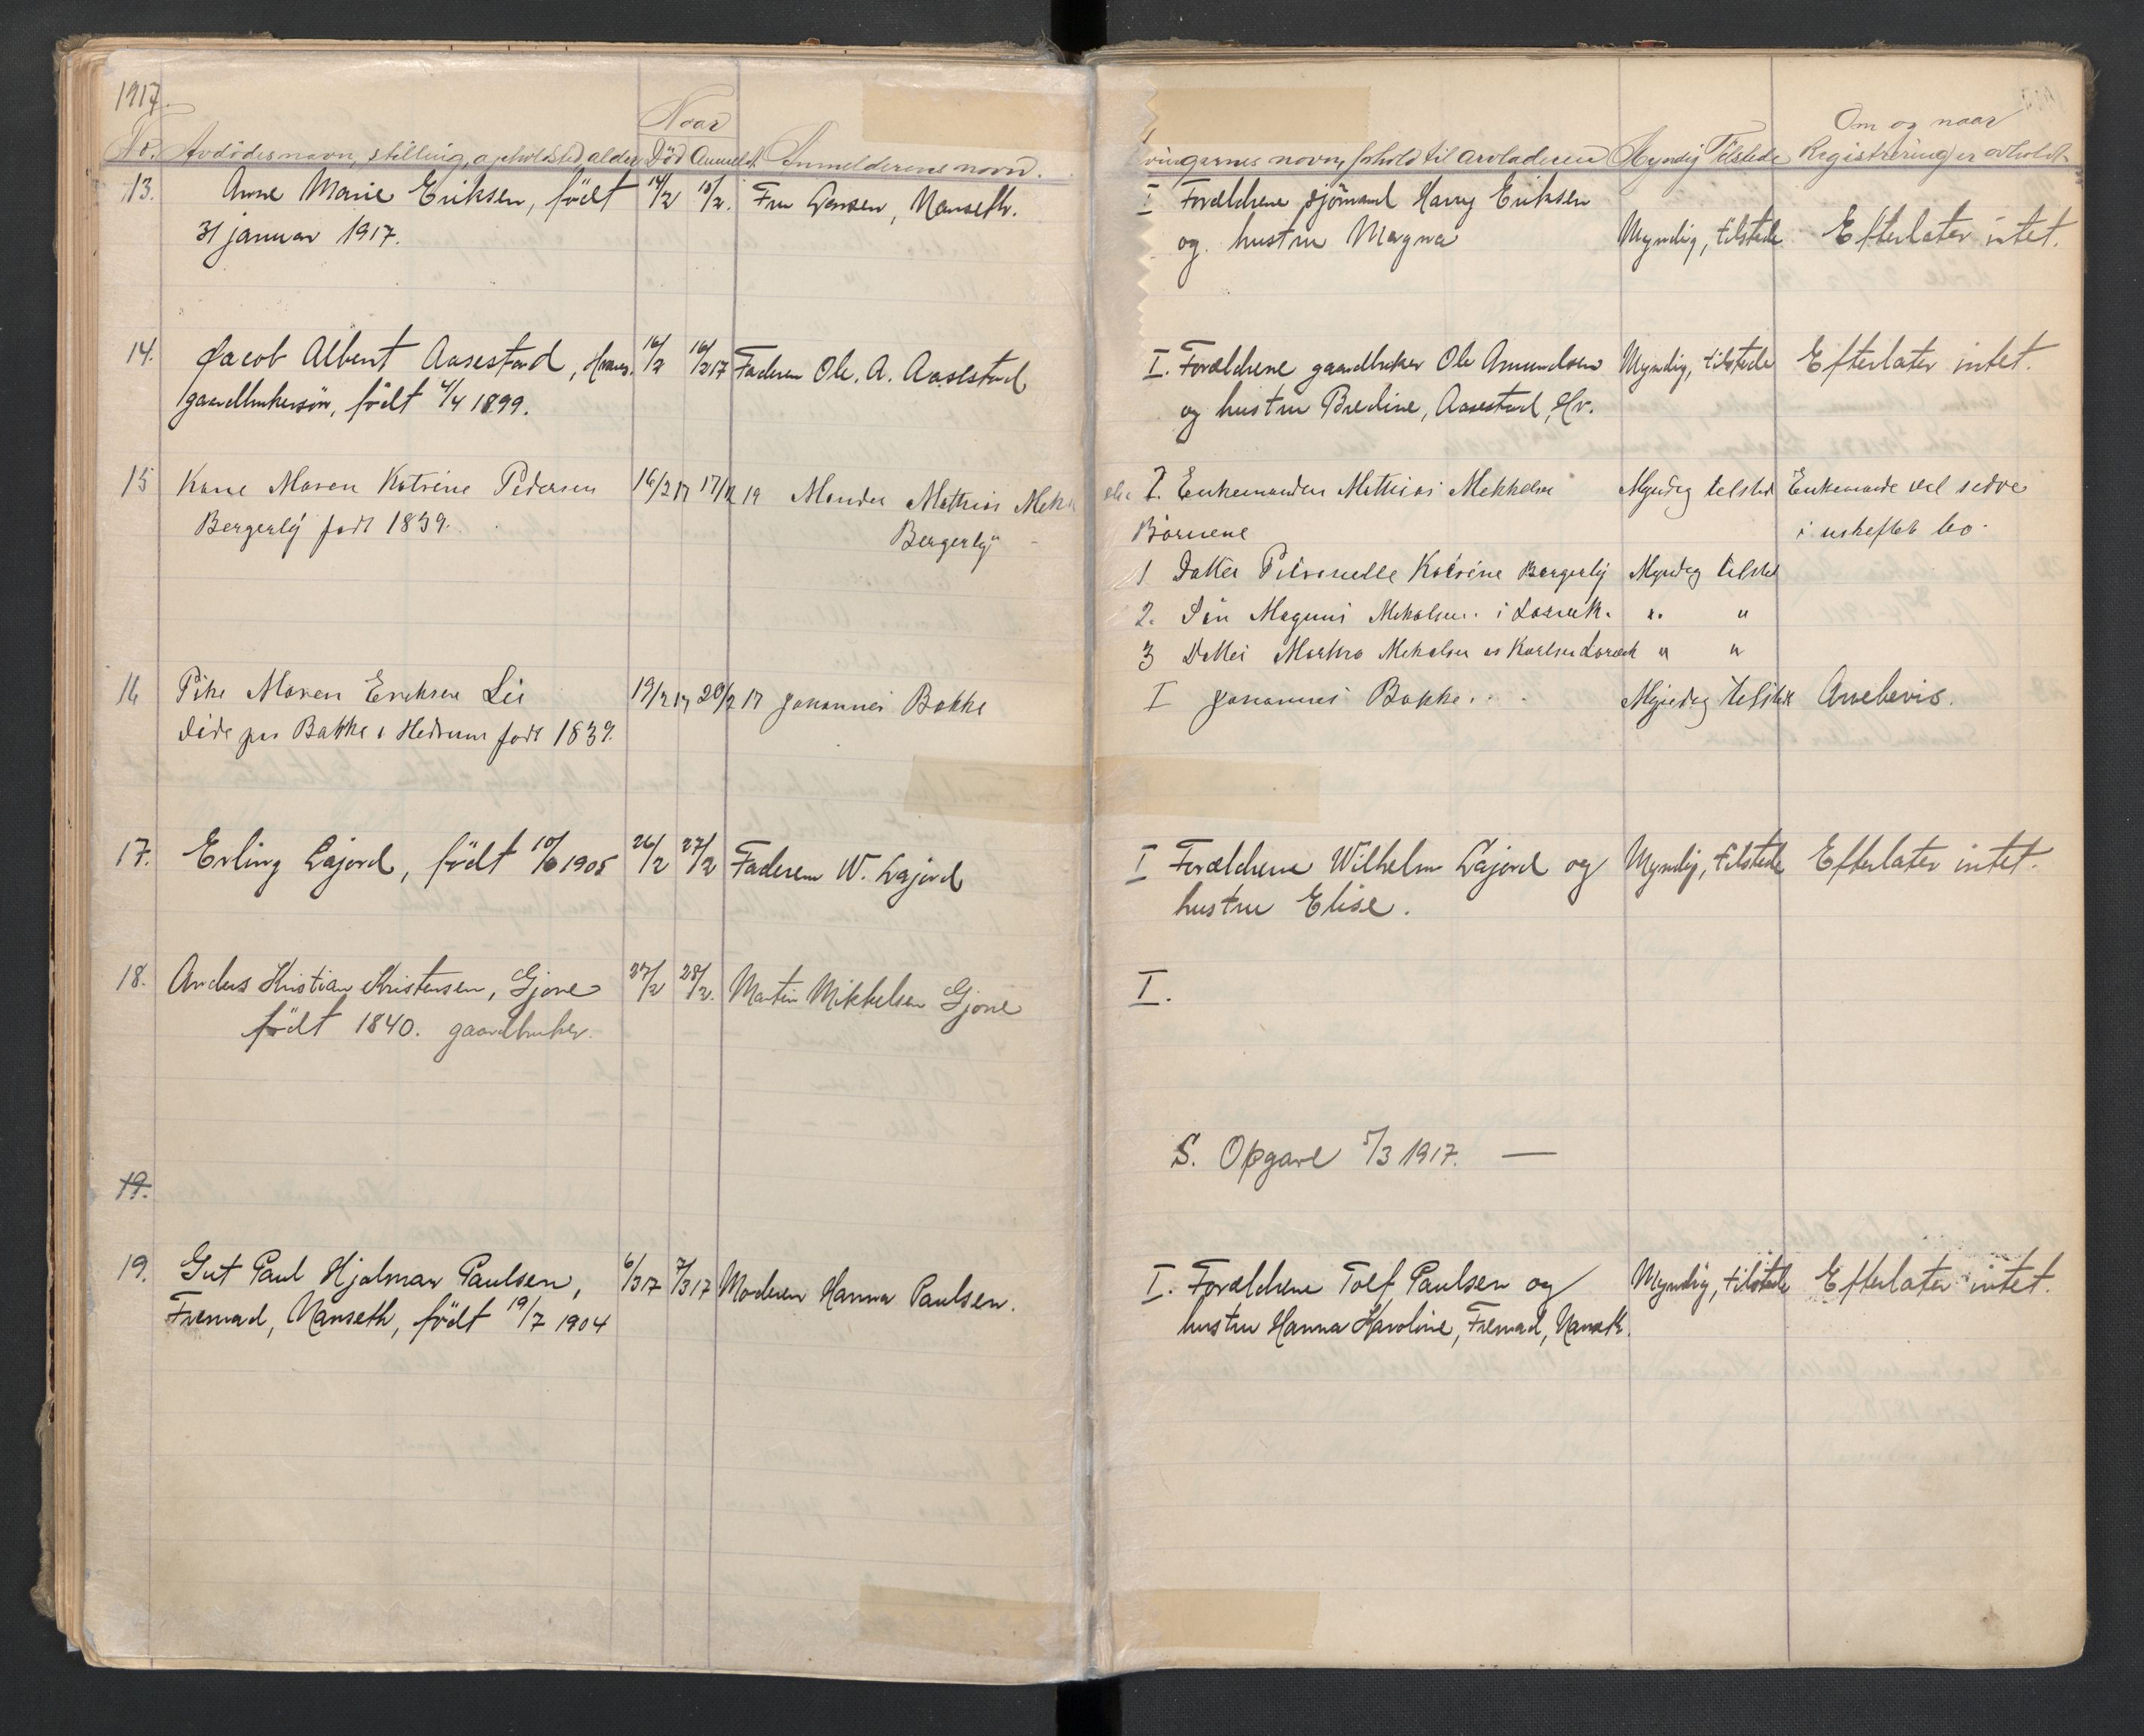 1917.
No. Avdödes navn, stilling, opholdsted, alder
Naar
Död Anmeldt.
Anmelderens navn.
vingernes navn, forhold til arvladeren
Myndig Tilstede
Om og naar
Registrering er avholdt
13. Anne Marie Eriksen, födt
31 januar 1917.
14/2 15/2. Fru Larsen, Nanseth.
I Forældrene sjömand Harry Eriksen
og hustru Magna
Myndig, tilstede Efterlater intet.
14. Jacob Albert Aasestad,
gaardbrukersön, födt 4/4 1899.
16/2 16/2 17 Faderen Ole. A. Aasestad
I. Forældrene gaardbruker Ole Amundsen
og hustru Bredine, Aasestad, Hv.
Myndig, tilstede Efterlater intet.
15 Kone Maren Katrine Pedersen
Bergerlÿ född 1839.
16/2 17 17/2 19 Manden Mathias
Bergerlÿ
I. Enkemanden Mathias Mekkelsen
Börnene
Myndig tilsted Enkemande vel sedve
i uskeftet bo.
1 Datter Petronelle Katrine Bergerlÿ Myndig tilsted
2. Sön Magnus Mekalsen i Larvik. " "
3 Datter Martha Mekalsen Karlsen Larvik " "
16 Pike Maren Ereksen Lie
döde paa Bakke i Hedrum född 1839.
19/2 17 20/2 17 Johannes Bakke
I Johannes Bakke. Myndig tilsted Anebevis.
17. Erling Lajord, födt 10/6 1905
26/2 27/2 Faderen W. Lajord
I Forældrene Wilhelm Lajord og
hustru Elise.
Myndig, tilstede Efterlater intet.
18. Anders Kristian Kristensen, Gjone
födt 1840. gaardbruker.
27/2 28/2. Martin Mikkelsen Gjone
I.
S. Opgave 5/3 1917. —
19.
19. Gut Paul Hjalmar Paulsen,
Fremad, Nanseth, födt 19/7 1904
6/3 17 7/3 17 Moderen Hanna Paulsen.
I. Forældrene Tolf Paulsen og
hustru Hanna Karoline, Fremad, Nanseth.
Myndig, tilstede Efterlater intet.